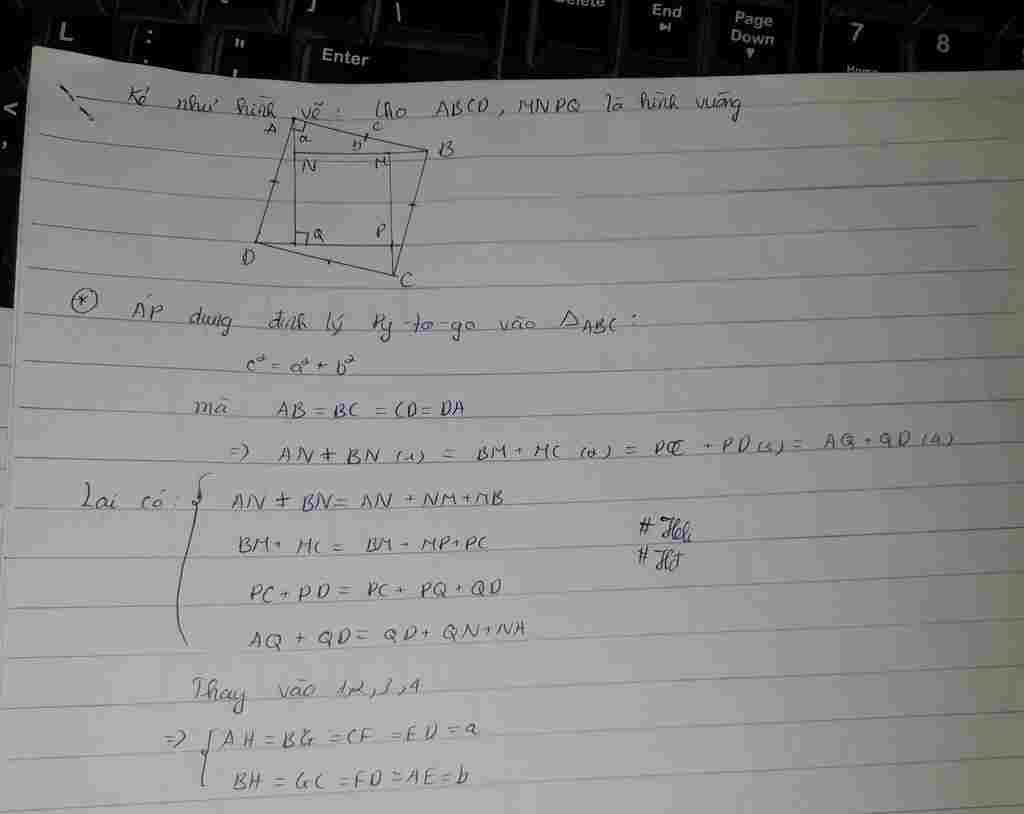 L
:
;
"
'
Enter
Delete
End
Page
Down
7
8
Home
Kẻ như hình vẽ: Cho ABCD, MNPQ là hình vuông
A
a
b
C
B
N
M
Q
P
D
C
* Áp dụng định lý Py-ta-go vào △ABC:
c² = a² + b²
mà AB = BC = CD = DA
=> AN + BN (1) = BM + MC (2) = PC + PD (3) = AQ + QD (4)
Lại có: { AN + BN = AN + NM + MB
BM + MC = BM + MP + PC
PC + PD = PC + PQ + QD
AQ + QD = QD + QN + NA
# Heli
# HT
Thay vào 1,2,3,4
=> { AH = BG = CF = ED = a
BH = GC = FD = AE = b